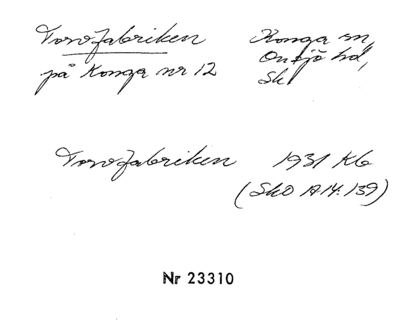 Torvfabriken Konga sn,
på Konga nr 12 Onsjö hd,
Sk
Torvfabriken 1931 K6
(SkO A14:139)
Nr 23310